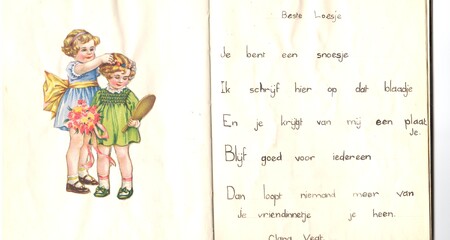 Beste Loesje
Je bent een snoesje
Ik schrijf hier op dat blaadje
En je krijgt van mij een plaat
je.
Blijf goed voor iedereen
Dan loopt niemand meer van
de vriendinnetje je heen.
Clara Vegt.